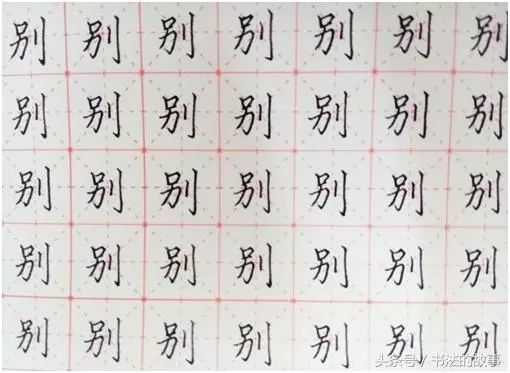 别别别别别别别
别别别别别别别
别别别别别别别
别别别别别别别
别别别别别别别
头条号 / 书法的故事